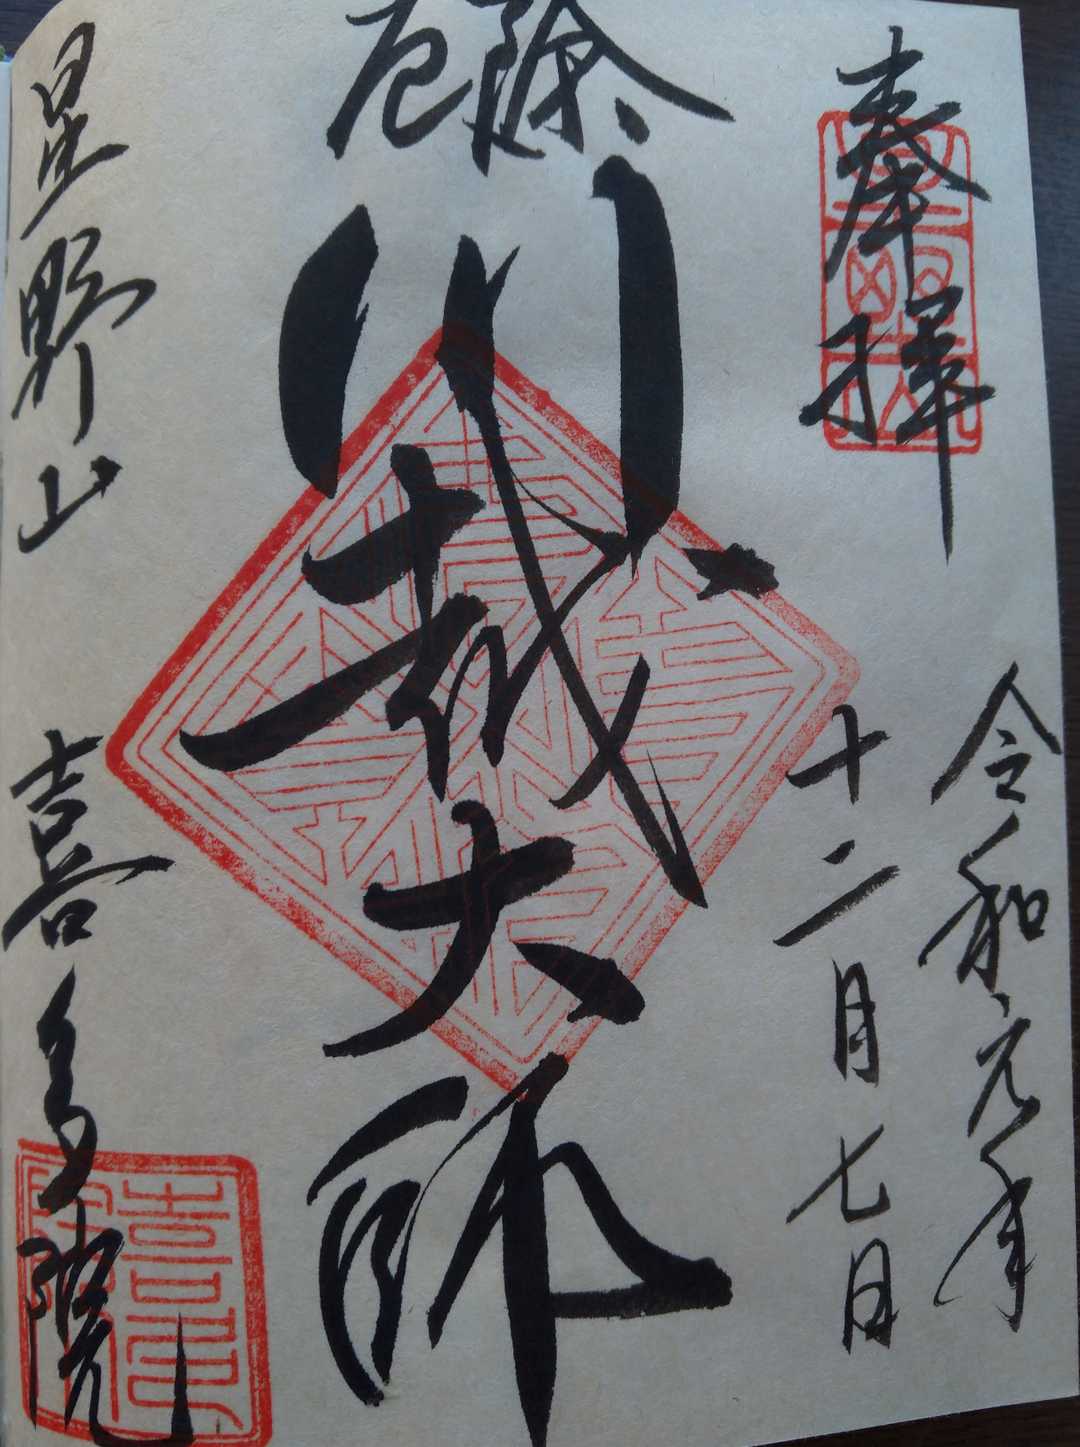 奉拝
令和元年
十二月七日
厄除
川越大師
星野山
喜多院
喜多院